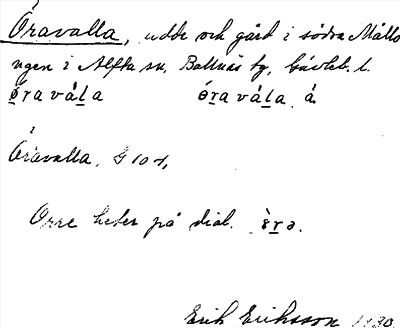 Öravalla, udde och gård i södra Mållå
ngen i Alfta sn, Bollnäs tg, Gävleb. l.
ø̀ravála ò̱ravála, á.
Öravalla, G 104,
Orre heter på dial. èrə.
Erik Eriksson 1930.